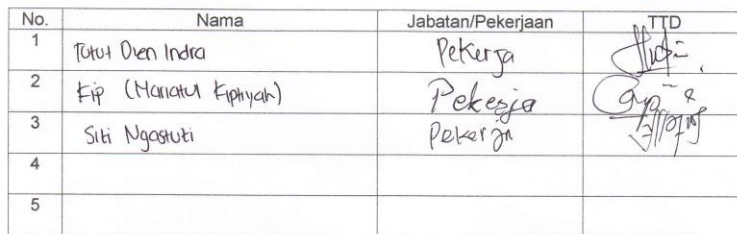 No. Nama Jabatan/Pekerjaan TTD
1 Tutut Dien Indra Pekerja
2 Kip (Mariatul Kiptiyah) Pekerja
3 Siti Ngastuti Pekerja
4
5